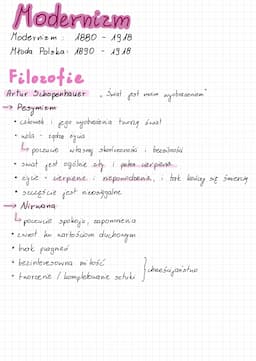 Modernizm
Modernizm : 1880 - 1918
Młoda Polska: 1890 - 1918
Filozofie
Artur Schopenhauer „Świat jest moim wyobrażeniem"
→ Pesymizm
• człowiek i jego wyobrażenia tworzą świat
• wola - żądza życia
↳ poczucie własnej skończoności i bezsilności
• świat jest ogólnie zły i pełen cierpień
• życie - cierpienie i niepowodzenia, i tak kończy się śmiercią
• szczęście jest nieosiągalne
→ Nirwana
↳ poczucie spokoju, zapomnienia
• zwrot ku wartościom duchowym
• brak pragnień
• bezinteresowna miłość
• tworzenie / kontemplowanie sztuki } chrześcijaństwo